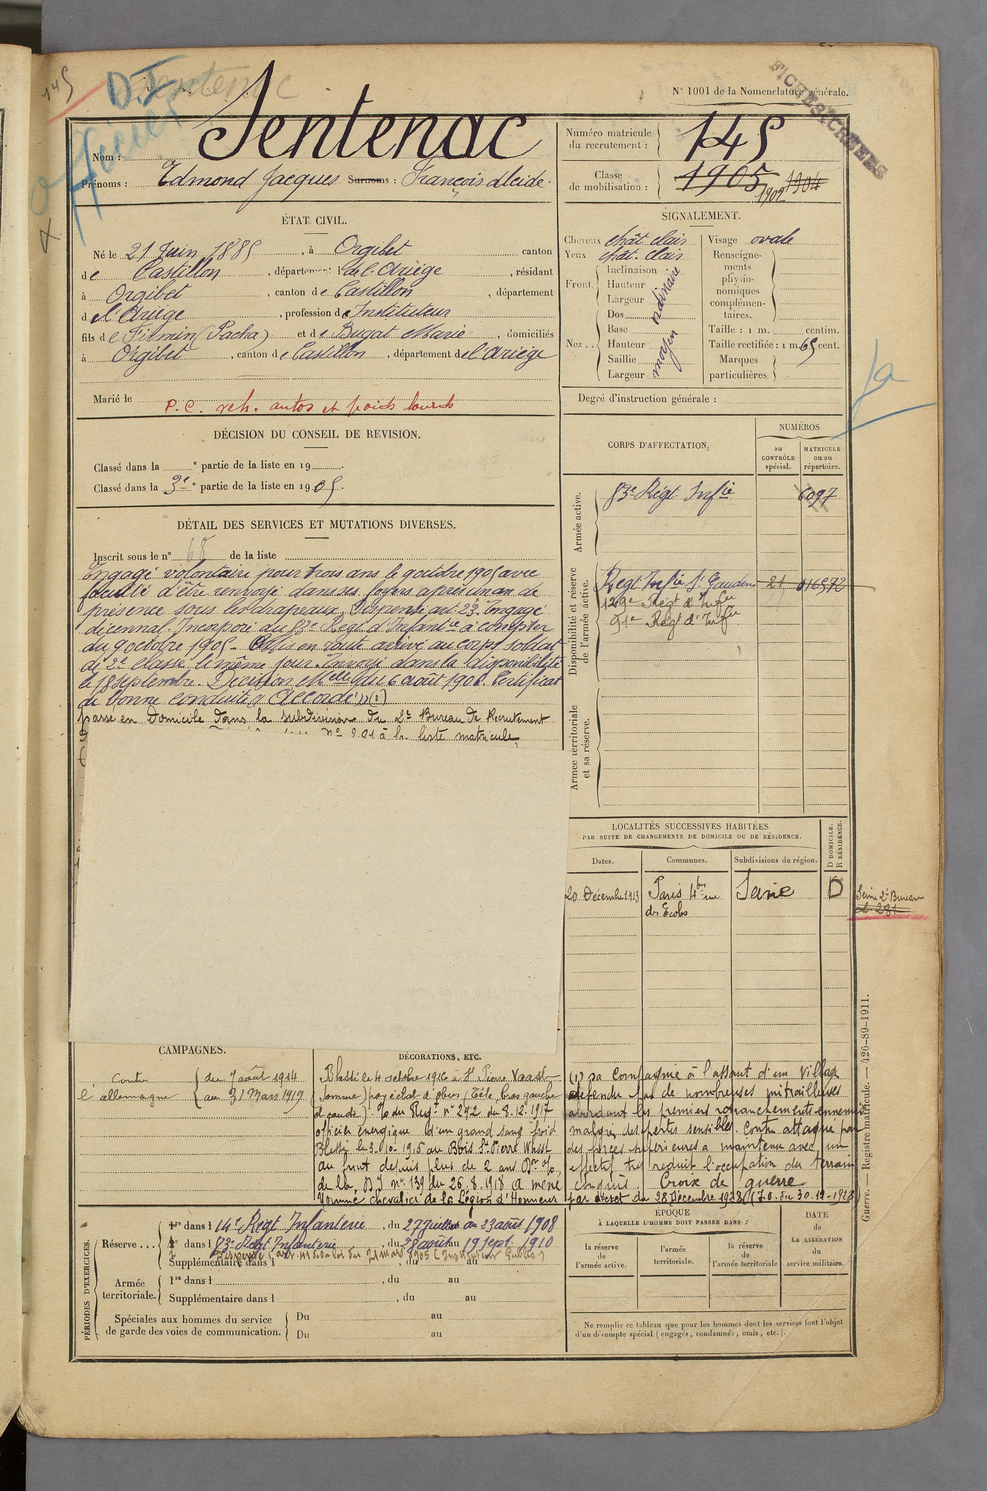 145
D.I
Sentenac
Officier
FICHES CHIFFRÉES
N° 1001 de la Nomenclature générale.
Nom : Sentenac
Prénoms : Edmond Jacques Surnoms : François Alcide
Numéro matricule du recrutement : 145
Classe de mobilisation : 1905 1902 1904
ÉTAT CIVIL.
Né le 21 Juin 1885, à Orgibet canton
de Castillon, département de l'Ariège, résidant
à Orgibet, canton de Castillon, département
de l'Ariège, profession d'Instituteur
fils de Firmin (Pacha) et de Bugat Marie, domiciliés
à Orgibet, canton de Castillon, département de l'Ariège
Marié le
P.C. veh. autos et poids lourds
SIGNALEMENT.
Cheveux chât. clair Visage ovale
Yeux chât. clair
Front. Inclinaison Hauteur Largeur ordinaire
Nez . . Dos Base Hauteur Saillie Largeur moyen
Renseignements physionomiques complémentaires.
Taille : 1 m. centim.
Taille rectifiée : 1 m. 65 cent.
Marques particulières.
Degré d'instruction générale :
DÉCISION DU CONSEIL DE REVISION.
Classé dans la ° partie de la liste en 19 .
Classé dans la 3e ° partie de la liste en 1905.
DÉTAIL DES SERVICES ET MUTATIONS DIVERSES.
Inscrit sous le n° 68 de la liste
Engagé volontaire pour trois ans le 9 octobre 1905 avec
faculté d'être renvoyé dans ses foyers après un an de
présence sous les drapeaux. Dispensé art. 23. Engagé
décennal. Incorporé au 83e Régt d'Infantie à compter
du 9 octobre 1905. Mis en route arrivé au corps soldat
de 2e classe le même jour. Renvoyé dans la disponibilité
le 18 septembre. Décision Mlle du 6 août 1906. Certificat
de bonne conduite "Accordé" (1)
passé en Domicile dans la subdivision du 2e Bureau de Recrutement
n° 201 à la liste matricule
CORPS D'AFFECTATION.
NUMÉROS
au CONTRÔLE spécial.
MATRICULE ou au répertoire.
Armée active.
83e Régt Infie 6097
Disponibilité et réserve de l'armée active.
Régt Infie St Gaudens 21
129e Régt d'Infie
91e Régt d'Infie
Armée territoriale et sa réserve.
LOCALITÉS SUCCESSIVES HABITÉES
PAR SUITE DE CHANGEMENTS DE DOMICILE OU DE RÉSIDENCE.
Dates. Communes. Subdivisions de région.
D DOMICILE.
R RÉSIDENCE.
20 Décembre 1913 Paris 4 bis rue des Écoles Seine D
Seine 2e Bureau
CAMPAGNES.
Contre l'allemagne { du 7 août 1914 au 31 Mars 1919
DÉCORATIONS, ETC.
Blessé le 4 octobre 1916 à St Pierre Vaast
Somme par éclat d'obus (Tête bras gauche
et cuisse). O/ du Régt n° 272 du 8.12.1917
officier énergique d'un grand sang froid
Blessé le 3.10.1916 au Bois St Pierre Waast
au front depuis plus de 2 ans
de la D.I n° 139 du 26.8.1918 a mené
Nommé chevalier de la Légion d'Honneur
(1) sa compagnie à l'assaut d'un village
défendu par de nombreuses mitrailleuses
abordant les premiers retranchements ennemis
malgré des pertes sensibles. Contre attaqué par
des forces supérieures a maintenu avec un
effectif très réduit l'occupation du terrain
conquis. Croix de guerre
par décret du 28 Décembre 1928 (J.O. du 30-12-1928)
PÉRIODES D'EXERCICES.
Réserve . . .
1re dans l 14e Régt Infanterie, du 27 juillet au 23 août 1908
2e dans l 83e Régt Infanterie, du 28 août au 19 sept. 1910
Supplémentaire dans l , du au
Armée territoriale.
1re dans l , du au
Supplémentaire dans l , du au
Spéciales aux hommes du service de garde des voies de communication.
Du au
Du au
ÉPOQUE
À LAQUELLE L'HOMME DOIT PASSER DANS :
la réserve de l'armée active.
l'armée territoriale.
la réserve de l'armée territoriale
DATE de LA LIBÉRATION du service militaire.
Ne remplir ce tableau que pour les hommes dont les services font l'objet
d'un décompte spécial (engagés, condamnés, omis, etc.).
Guerre. — Registre matricule. — 426-89-1911.